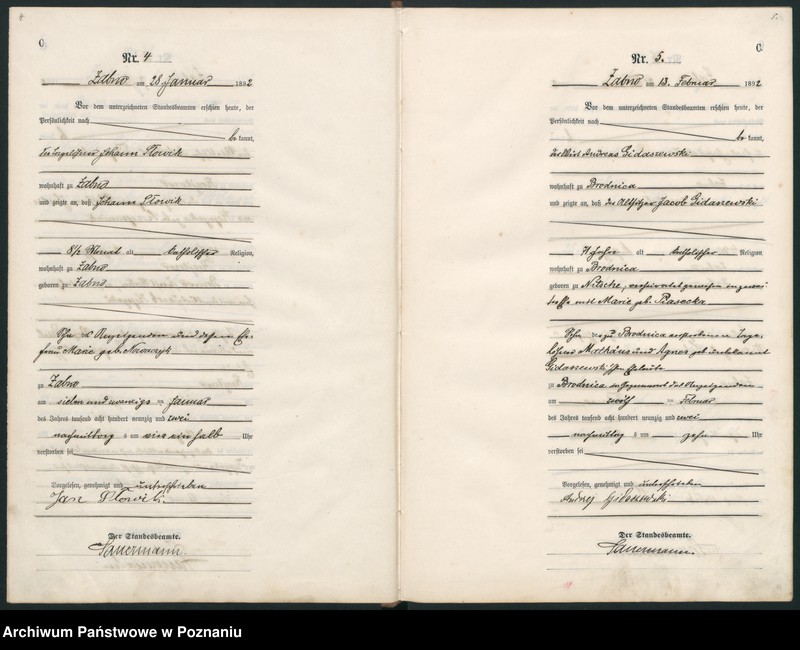 4
C.
Nr. 4
Zabno am 28 Januar 1892
Vor dem unterzeichneten Standesbeamten erschien heute, der
Persönlichkeit nach
bekannt,
Johann Słowik
wohnhaft zu Zabno
und zeigte an, daß Johann Słowik
8 1/2 Monat alt katholischer Religion,
wohnhaft zu Zabno
geboren zu Zabno
Sohn d Anzeigenden und dessen Ehe-
frau Marie geb. Nowaczyk
zu Zabno
am sieben und zwanzigs ten Januar
des Jahres tausend acht hundert neunzig und zwei
nachmittag s um ein halb Uhr
verstorben sei
Vorgelesen, genehmigt und unterschrieben
Jan Słowik
Der Standesbeamte.
Sauermann.
5.
C.
Nr. 5.
Żabno am 13. Februar 1892
Vor dem unterzeichneten Standesbeamten erschien heute, der
Persönlichkeit nach
bekannt,
der Wirt Andreas Gidaszewski
wohnhaft zu Brodnica
und zeigte an, daß der Altsitzer Jacob Gidaszewski
71 Jahre alt katholischer Religion,
wohnhaft zu Brodnica
geboren zu Nitsche, verheiratet gewesen in zwei
ter Ehe mit Marie geb. Piasecka
Sohn der zu Brodnica verstorbenen Tage-
löhner Mathäus und Agnes geb unbekannt
Gidaszewski'schen Eheleute
zu Brodnica in Gegenwart des Anzeigenden
am zwölf ten Februar
des Jahres tausend acht hundert neunzig und zwei
nachmittag s um zehn Uhr
verstorben sei
Vorgelesen, genehmigt und unterschrieben
Andrzej Gidaszewski
Der Standesbeamte.
Sauermann.
Archiwum Państwowe w Poznaniu